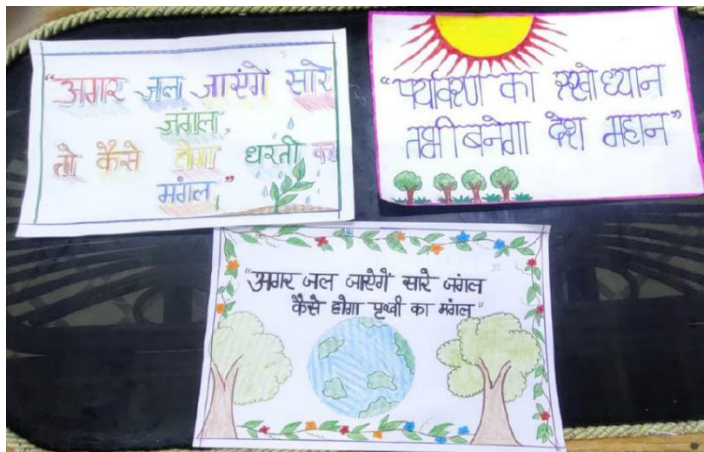 "अगर जल जाएंगे सारे
जंगल,
तो कैसे होगा धरती का
मंगल,"
"पर्यावरण का रखो ध्यान
तभी बनेगा देश महान"
"अगर जल जाऐगें सारे जंगल
कैसे होगा पृथ्वी का मंगल"